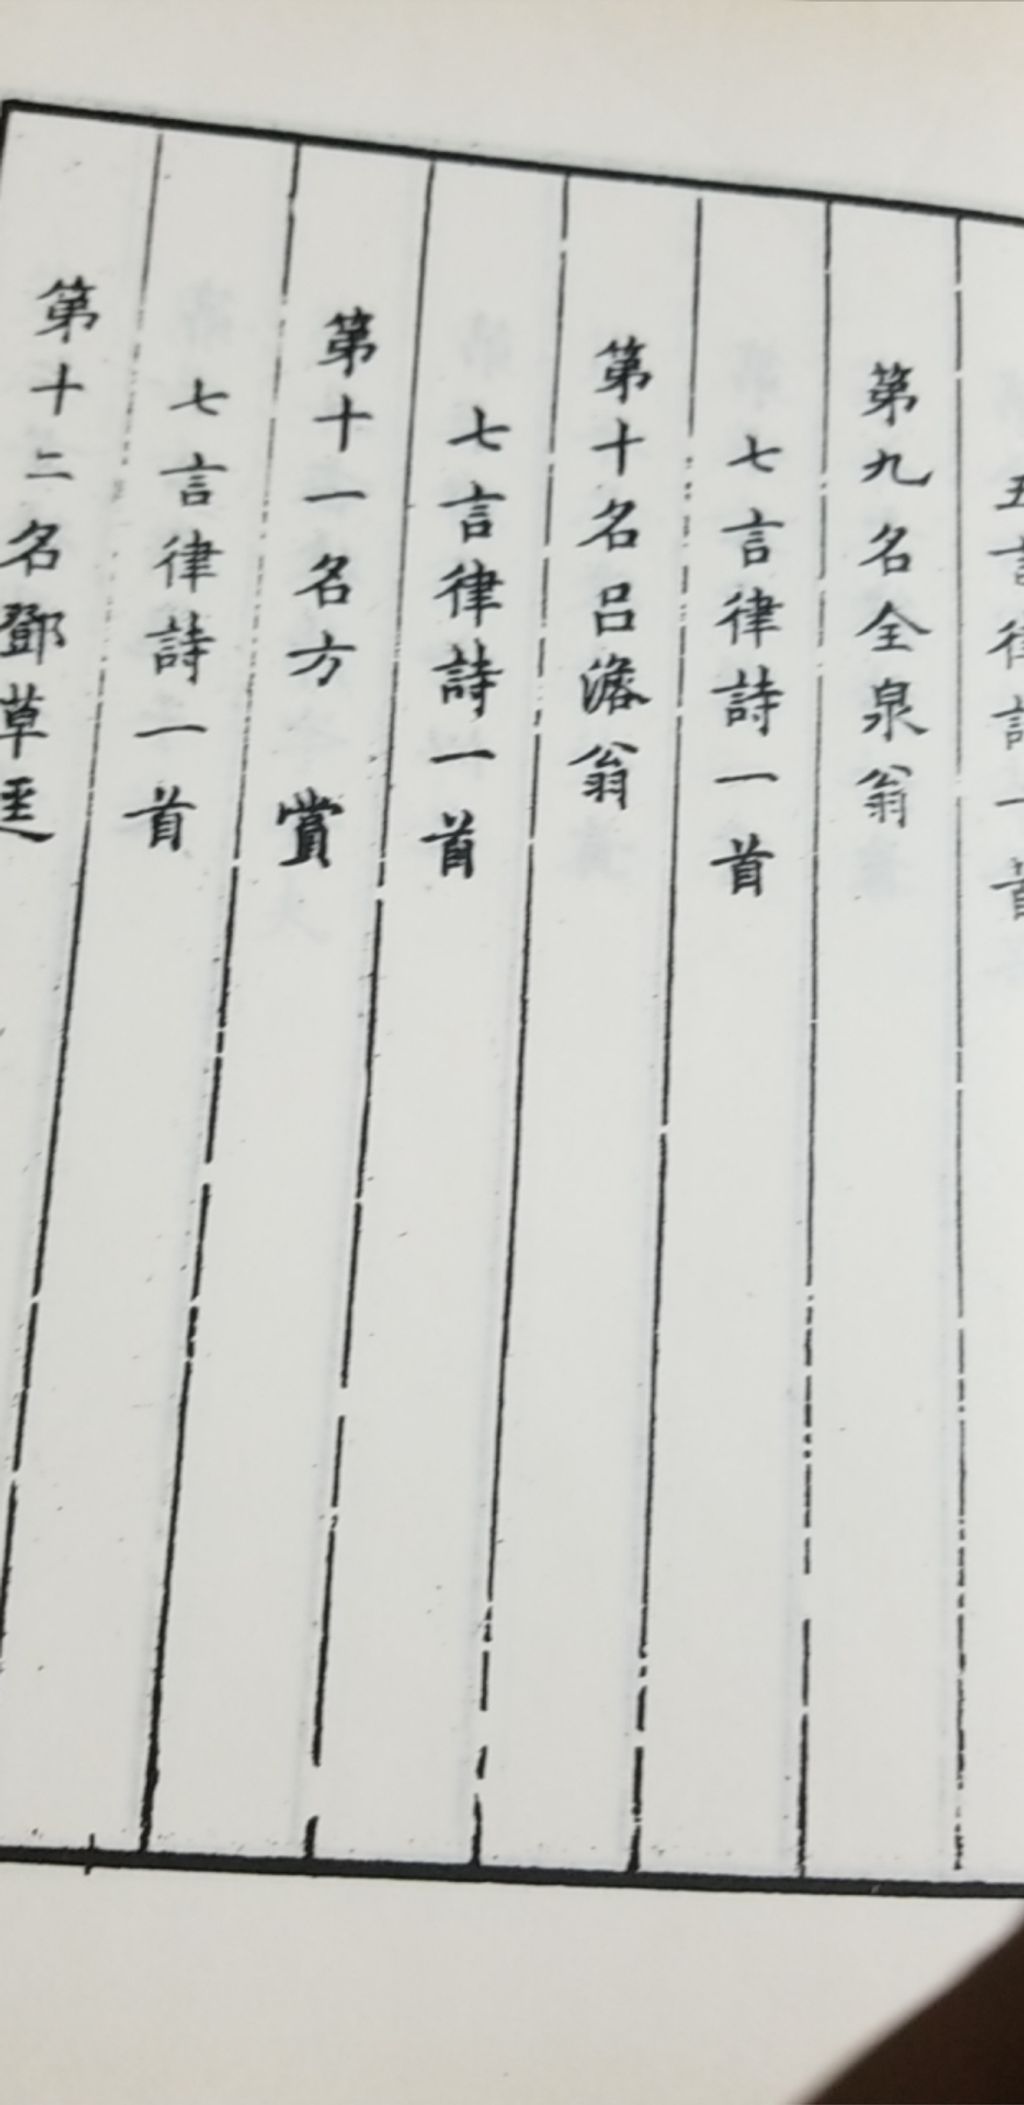 五言律詩一首
第九名全泉翁
七言律詩一首
第十名呂澹翁
七言律詩一首
第十一名方 賞
七言律詩一首
第十二名鄧草逕